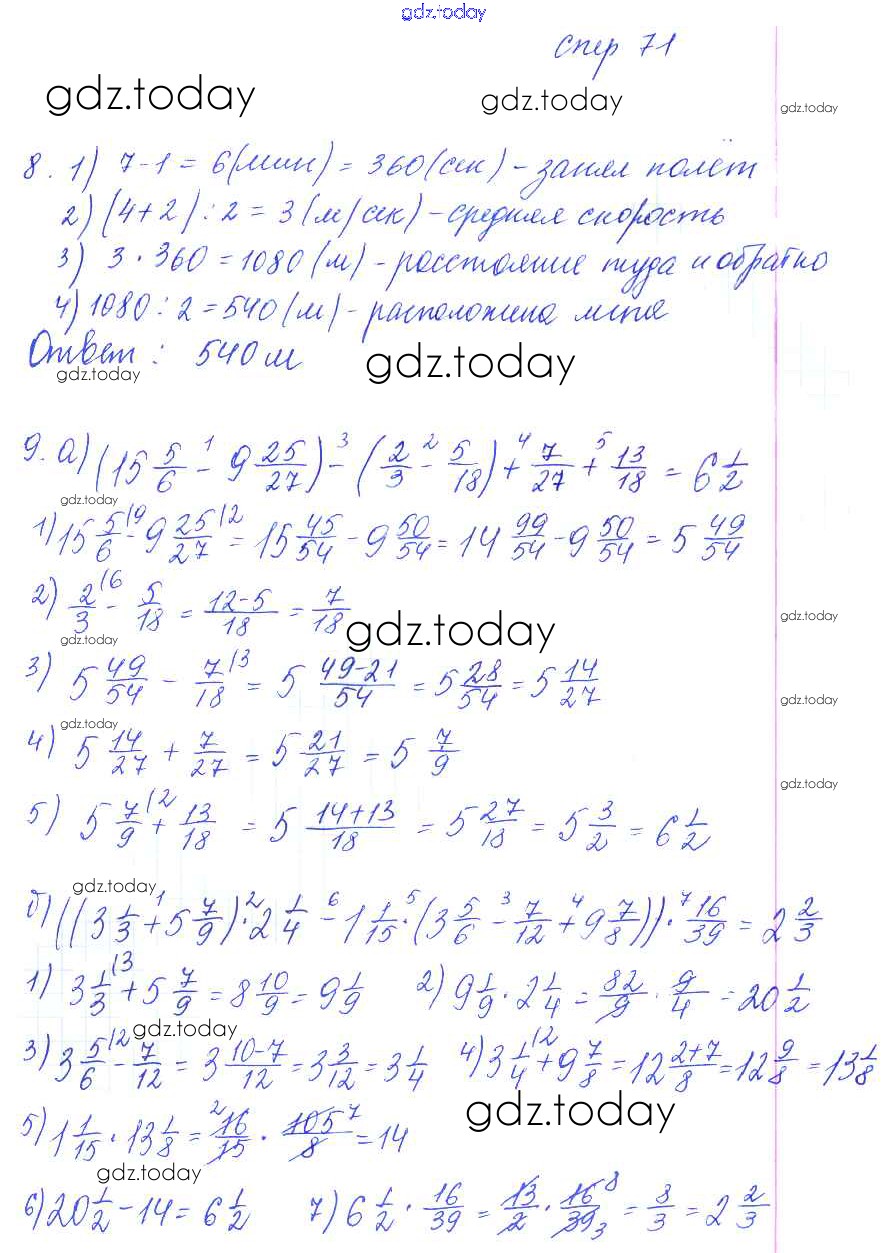 gdz.today
стр 71
gdz.today gdz.today gdz.today
8. 1) 7-1 = 6(мин) = 360(сек) - занял полёт
2) (4+2) : 2 = 3 (м/сек) - средняя скорость
3) 3 · 360 = 1080 (м) - расстояние туда и обратно
4) 1080 : 2 = 540 (м) - расположена
Ответ : 540 м
gdz.today gdz.today
9. а) (15 5/6 -¹ 9 25/27) -³ (2/3 -² 5/18) +⁴ 7/27 +⁵ 13/18 = 6 1/2
gdz.today
1) 15 5/6 (9 - 9 25/27 (2 = 15 45/54 - 9 50/54 = 14 99/54 - 9 50/54 = 5 49/54
2) 2/3 (6 - 5/18 = 12-5/18 = 7/18
gdz.today gdz.today gdz.today
3) 5 49/54 - 7/18 (3 = 5 49-21/54 = 5 28/54 = 5 14/27
gdz.today gdz.today
4) 5 14/27 + 7/27 = 5 21/27 = 5 7/9
gdz.today
5) 5 7/9 (2 + 13/18 = 5 14+13/18 = 5 27/18 = 5 3/2 = 6 1/2
gdz.today
б) ((3 1/3 +¹ 5 7/9) ·² 2 1/4 -⁶ 1 1/15 ·⁵ (3 5/6 -³ 7/12 +⁴ 9 7/8)) ·⁷ 16/39 = 2 2/3
1) 3 1/3 (3 + 5 7/9 = 8 10/9 = 9 1/9 2) 9 1/9 · 2 1/4 = 82/9 · 9/4 = 20 1/2
gdz.today
3) 3 5/6 (2 - 7/12 = 3 10-7/12 = 3 3/12 = 3 1/4 4) 3 1/4 (2 + 9 7/8 = 12 2+7/8 = 12 9/8 = 13 1/8
gdz.today
5) 1 1/15 · 13 1/8 = ²16/15 · 105⁷/8 = 14
gdz.today
6) 20 1/2 - 14 = 6 1/2 7) 6 1/2 · 16/39 = 13/2 · 16⁸/39₃ = 8/3 = 2 2/3